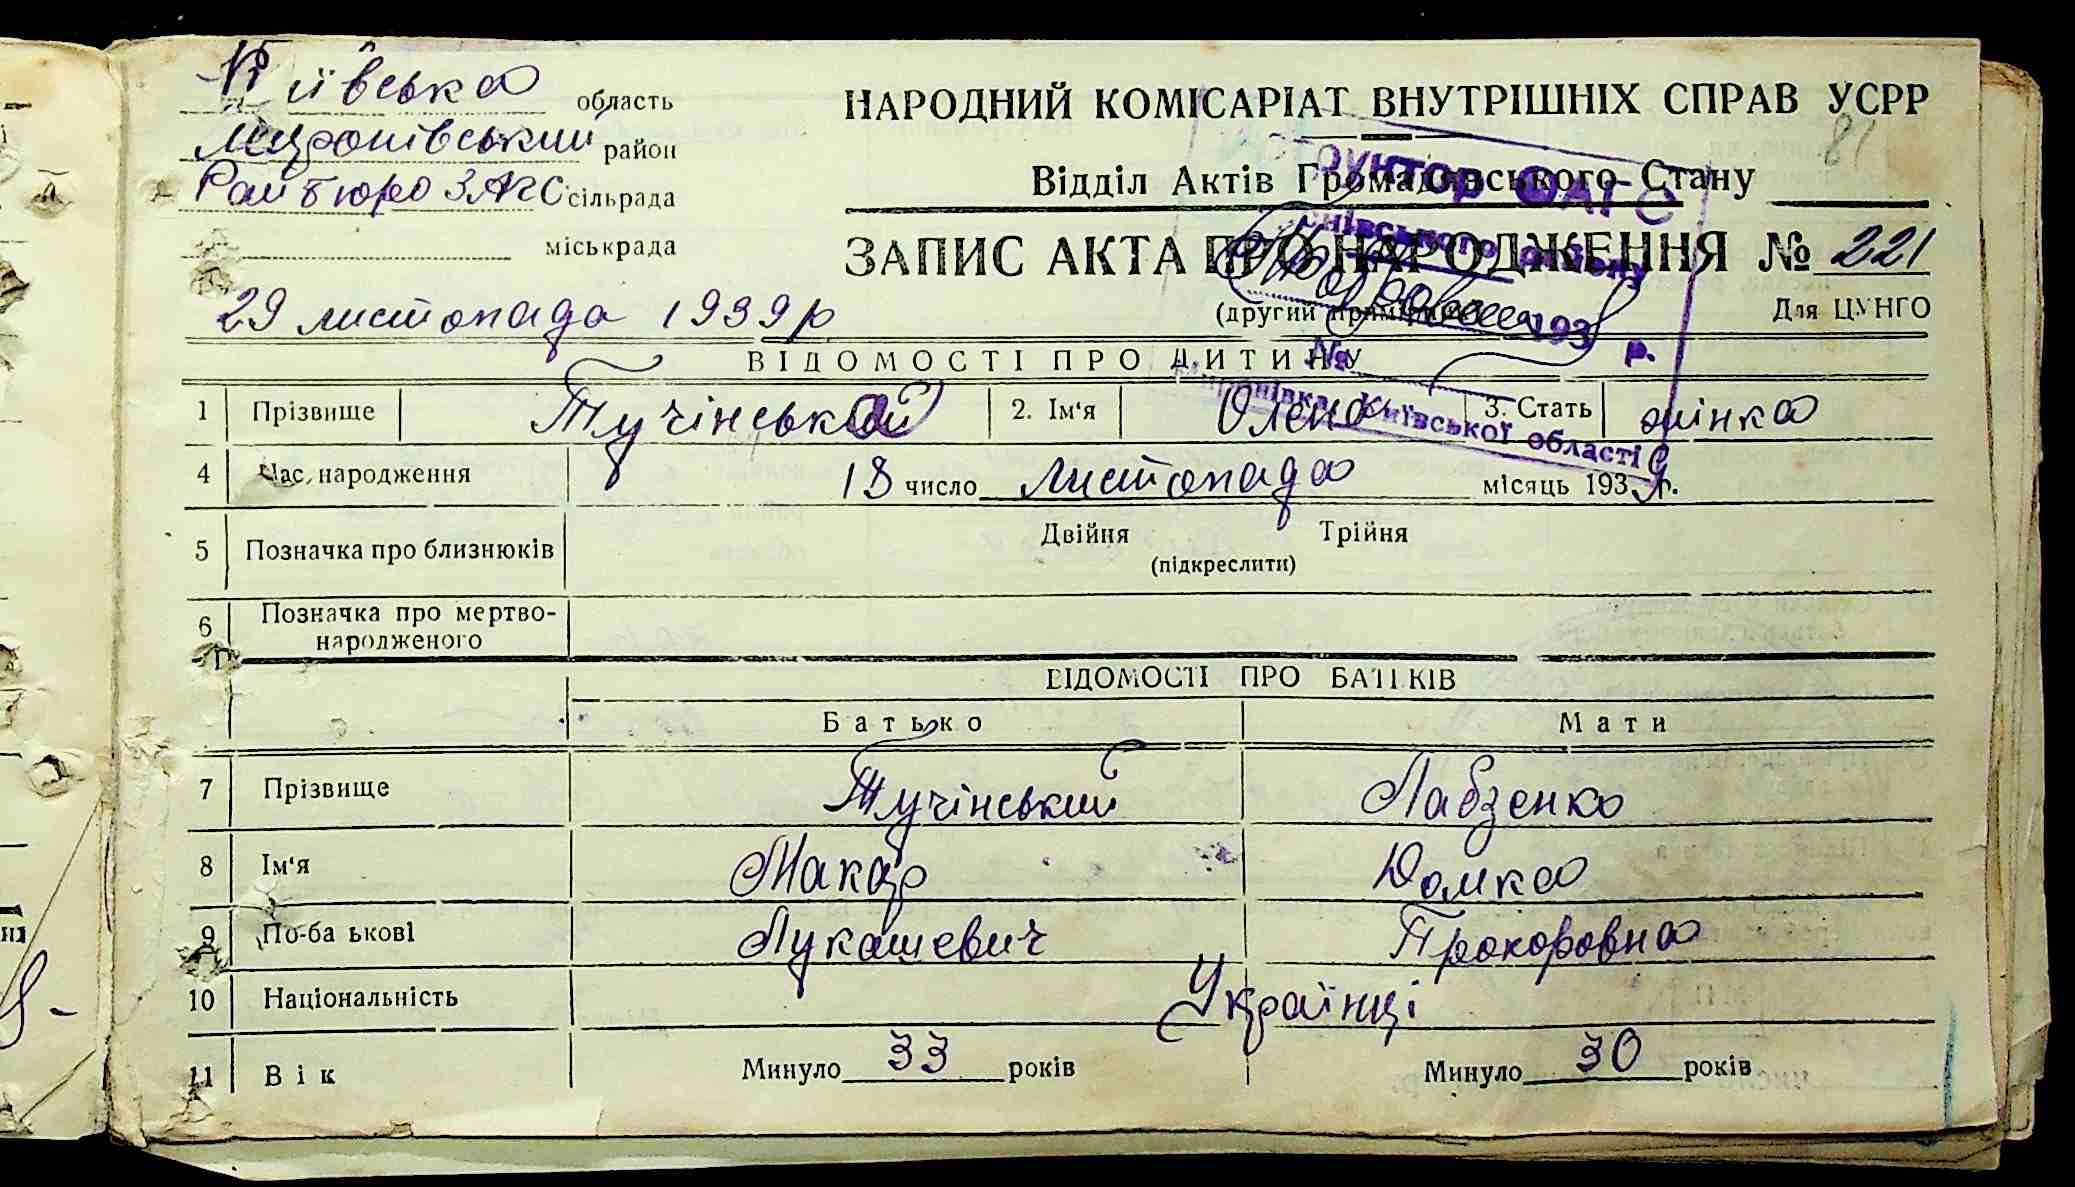 Київська область
Миронівський район
Райбюро ЗАГС сільрада
міськрада
29 листопада 1939 р
НАРОДНИЙ КОМІСАРІАТ ВНУТРІШНІХ СПРАВ УСРР
81
Відділ Актів Громадянського Стану
ЗАПИС АКТА ПРО НАРОДЖЕННЯ № 221
(другий примірник) Для ЦУНГО
193 р.
№
Миронівка, Київської області
ВІДОМОСТІ ПРО ДИТИНУ
1 Прізвище Тучінська 2. Ім'я Олена 3. Стать жінка
4 Час народження 18 число листопада місяць 1939 р.
5 Позначка про близнюків Двійня Трійня
(підкреслити)
6 Позначка про мертво-
народженого
ВІДОМОСТІ ПРО БАТЬКІВ
Батько Мати
7 Прізвище Тучінський Лабзенко
8 Ім'я Макар Домка
9 По-батькові Лукашевич Прокоровна
10 Національність Українці
11 Вік Минуло 33 років Минуло 30 років